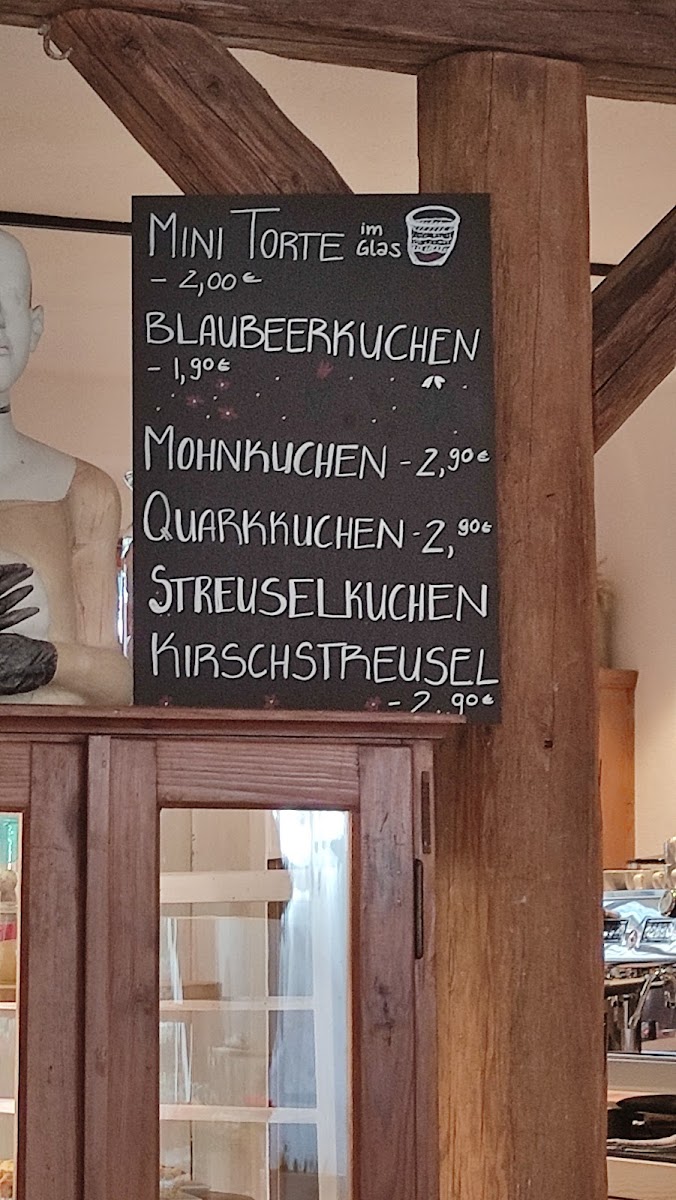 MINI TORTE im Glas
- 2,00 €
BLAUBEERKUCHEN
- 1,90 €
MOHNKUCHEN - 2,90 €
QUARKKUCHEN - 2,90 €
STREUSELKUCHEN
KIRSCHSTREUSEL
- 2,90 €